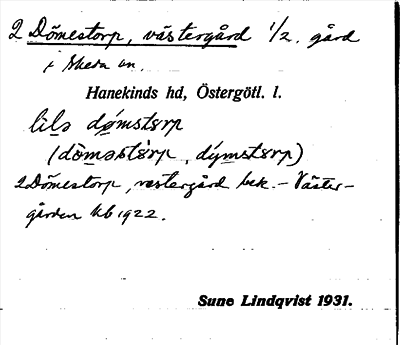 2 Dömestorp, västergård 1/2. gård
i Skeda sn.
Hanekinds hd, Östergötl. l.
lilə dømstɤrp
(döməstɤrp, dýmstɤrp)
2 Dömestorp, västergård bek. – Väster-
gården Kb 1922.
Sune Lindqvist 1931.